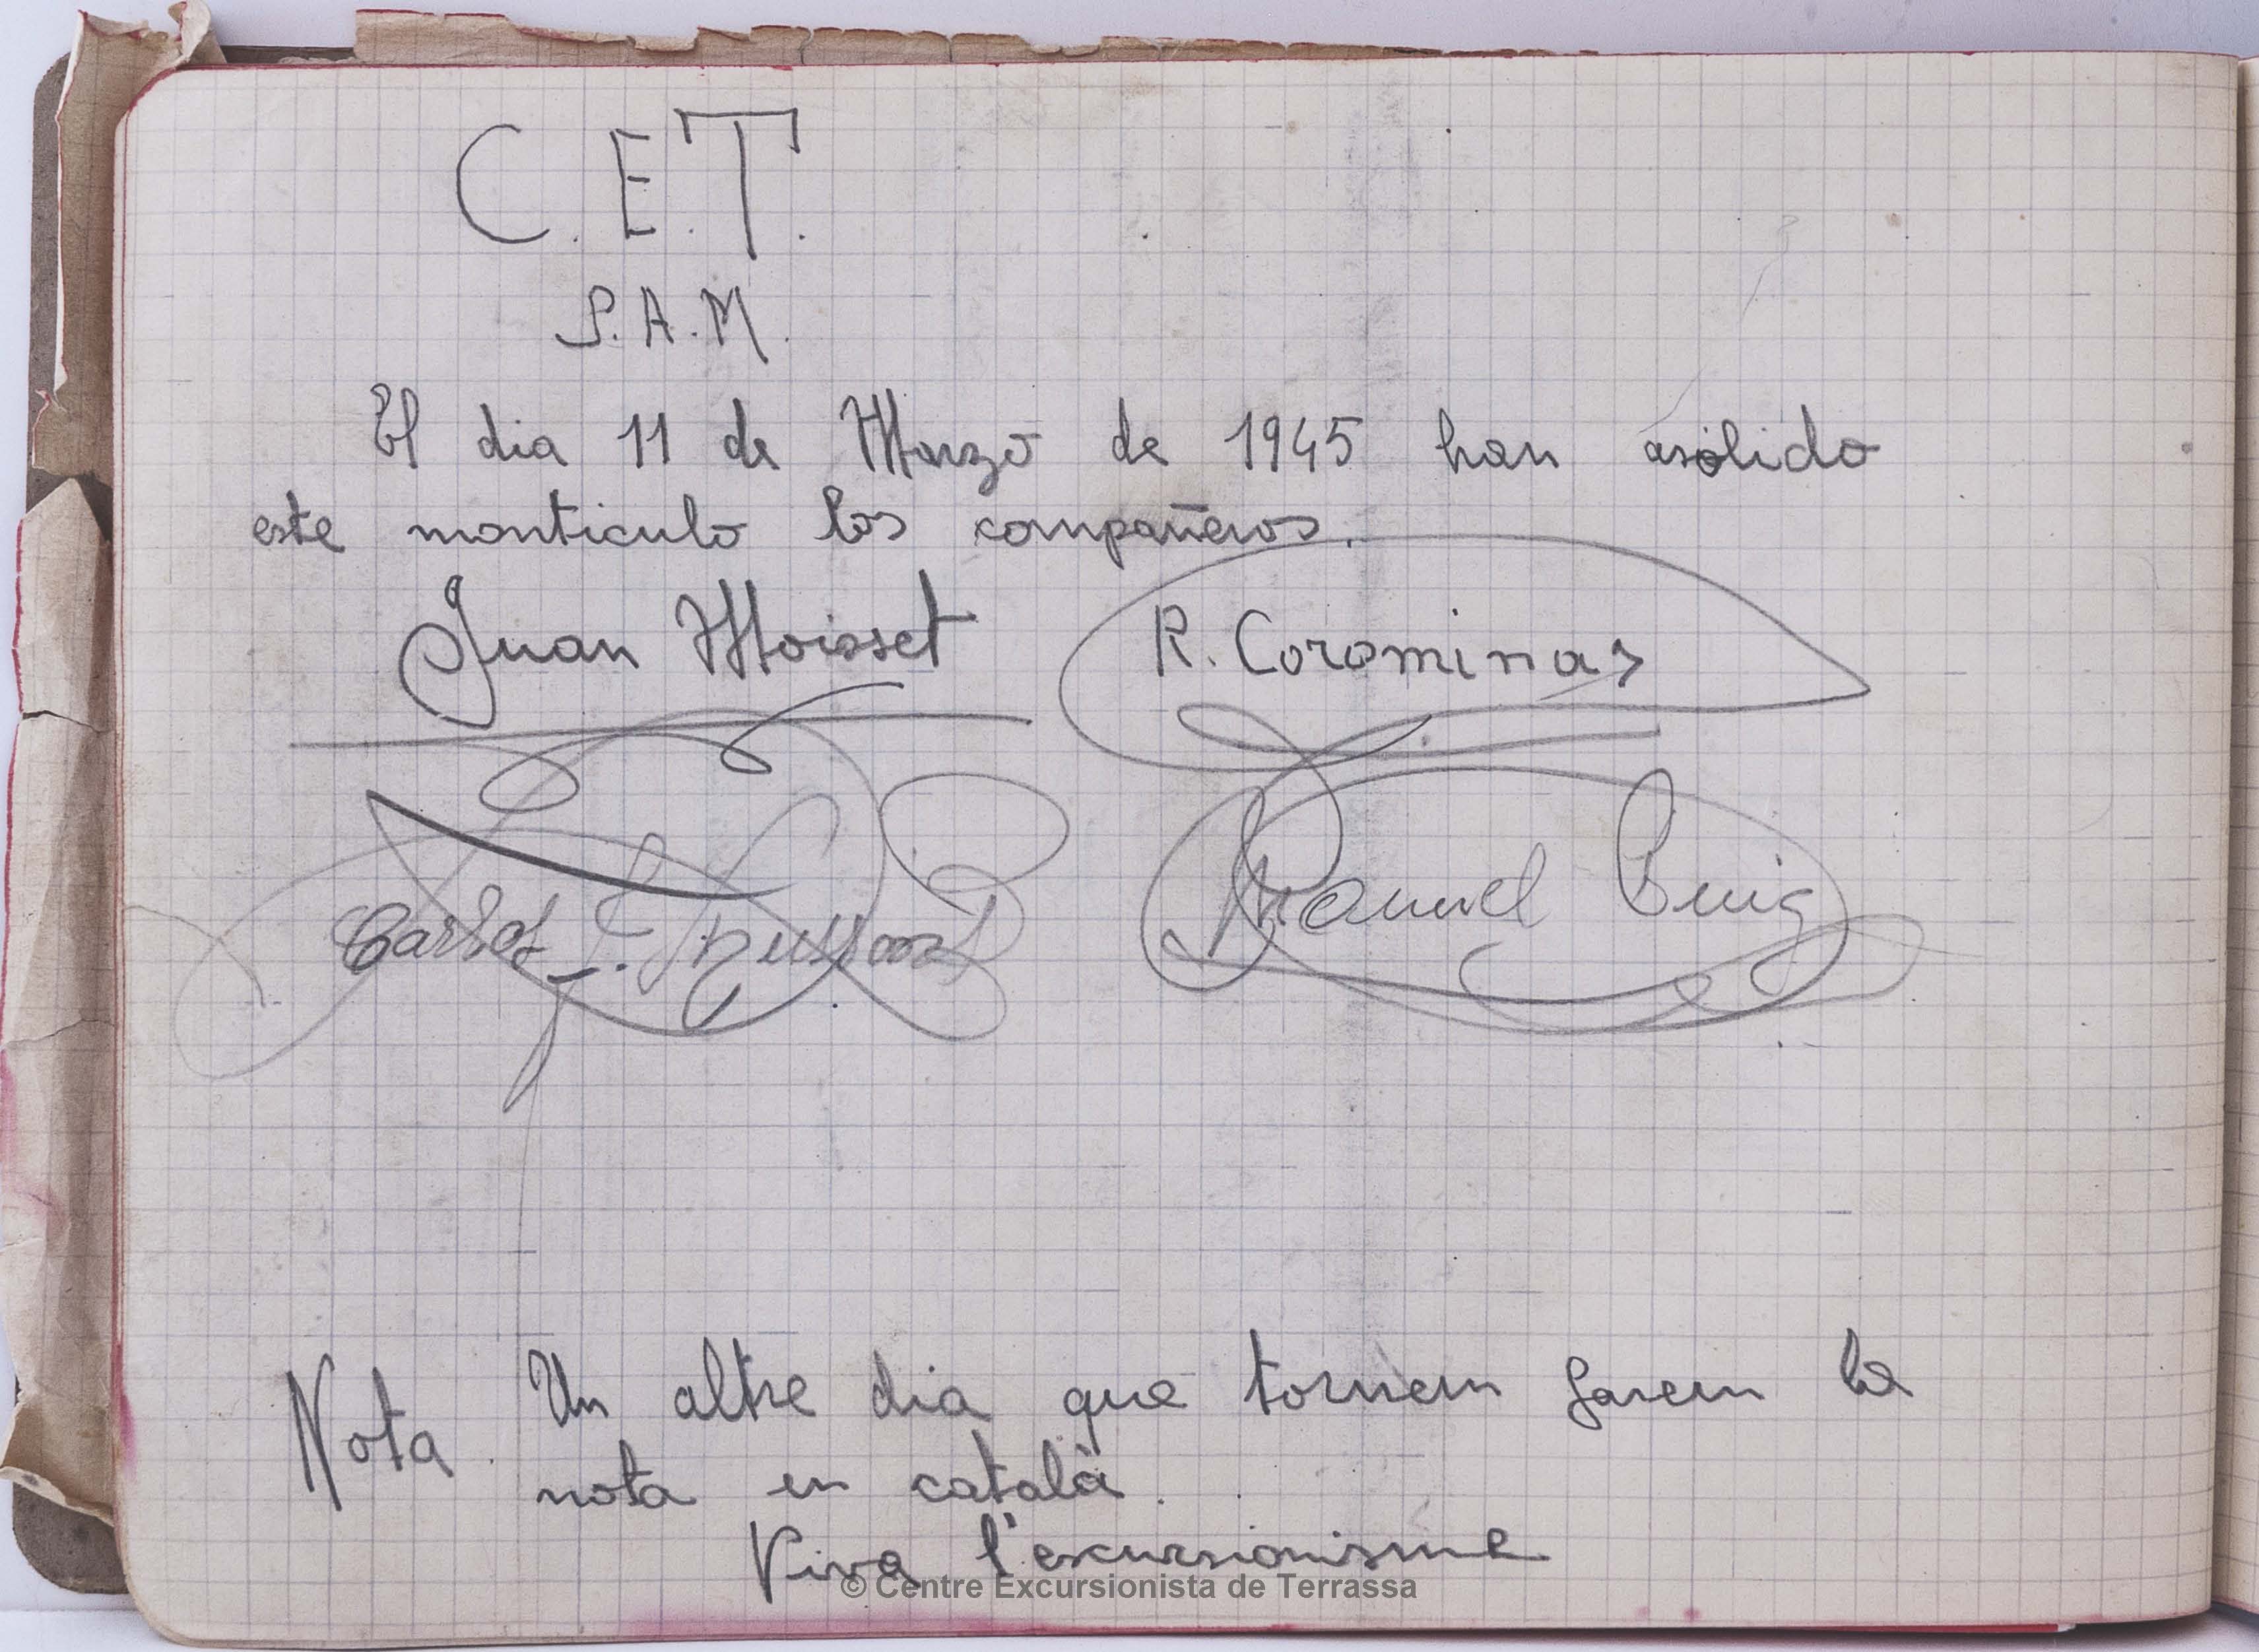 C.E.T.
S.A.M.
El dia 11 de Marzo de 1945 han asolido
este monticulo los compañeros.
Juan Moisset R. Corominas
Carlos Manuel Puig
Nota Un altre dia que tornem farem la
nota en català.
Viva l'excursionisme
© Centre Excursionista de Terrassa